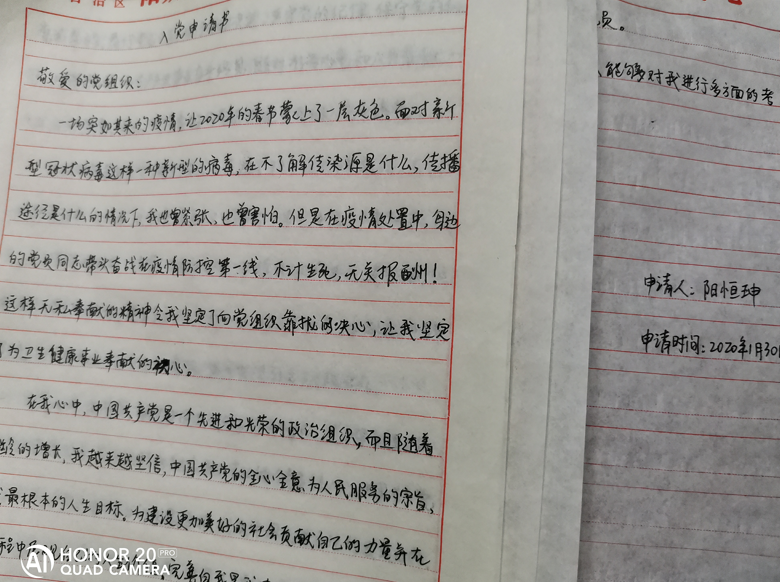 入党申请书
敬爱的党组织：
一场突如其来的疫情，让2020年的春节蒙上了一层灰色。面对新
型冠状病毒这样一种新型的病毒，在不了解传染源是什么，传播
途径是什么的情况下，我也曾紧张，也曾害怕。但是在疫情处置中，身边
的党员同志带头奋战在疫情防控第一线，不计生死，无关报酬！
这样无私奉献的精神令我坚定了向党组织靠拢的决心，让我坚定
了为卫生健康事业奉献的决心。
在我心中，中国共产党是一个先进和光荣的政治组织，而且随着
龄的增长，我越来越坚信，中国共产党的全心全意为人民服务的宗旨，
最根本的人生目标。为建设更加美好的社会贡献自己的力量并在
程中
员。
能够对我进行多方面的考
申请人：阳恒珅
申请时间：2020年1月30
HONOR 20 PRO
AI QUAD CAMERA